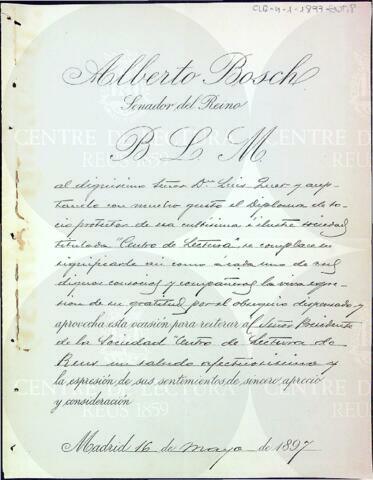 CLQ-4-1-1897-ENT.8
Alberto Bosch
Senador del Reino
B. L. M.
al dignísimo Señor Dn. Luis Quer y acep-
tando con mucho gusto el Diploma de so-
cio protector de esa cultísima é ilustre sociedad
titulada "Centro de Lectura" se complace en
significarle asi como á cada uno de sus
dignos consocios y compañeros la viva expre-
sión de su gratitud por el obsequio dispensado y
aprovecha esta ocasión para reiterar al Señor Presidente
de la Sociedad "Centro de Lectura de
Reus" un saludo afectuosísimo y
la espresión de sus sentimientos de sincero aprecio
y consideración
Madrid 16 de mayo de 1897.
CENTRE DE LECTURA
REUS 1859